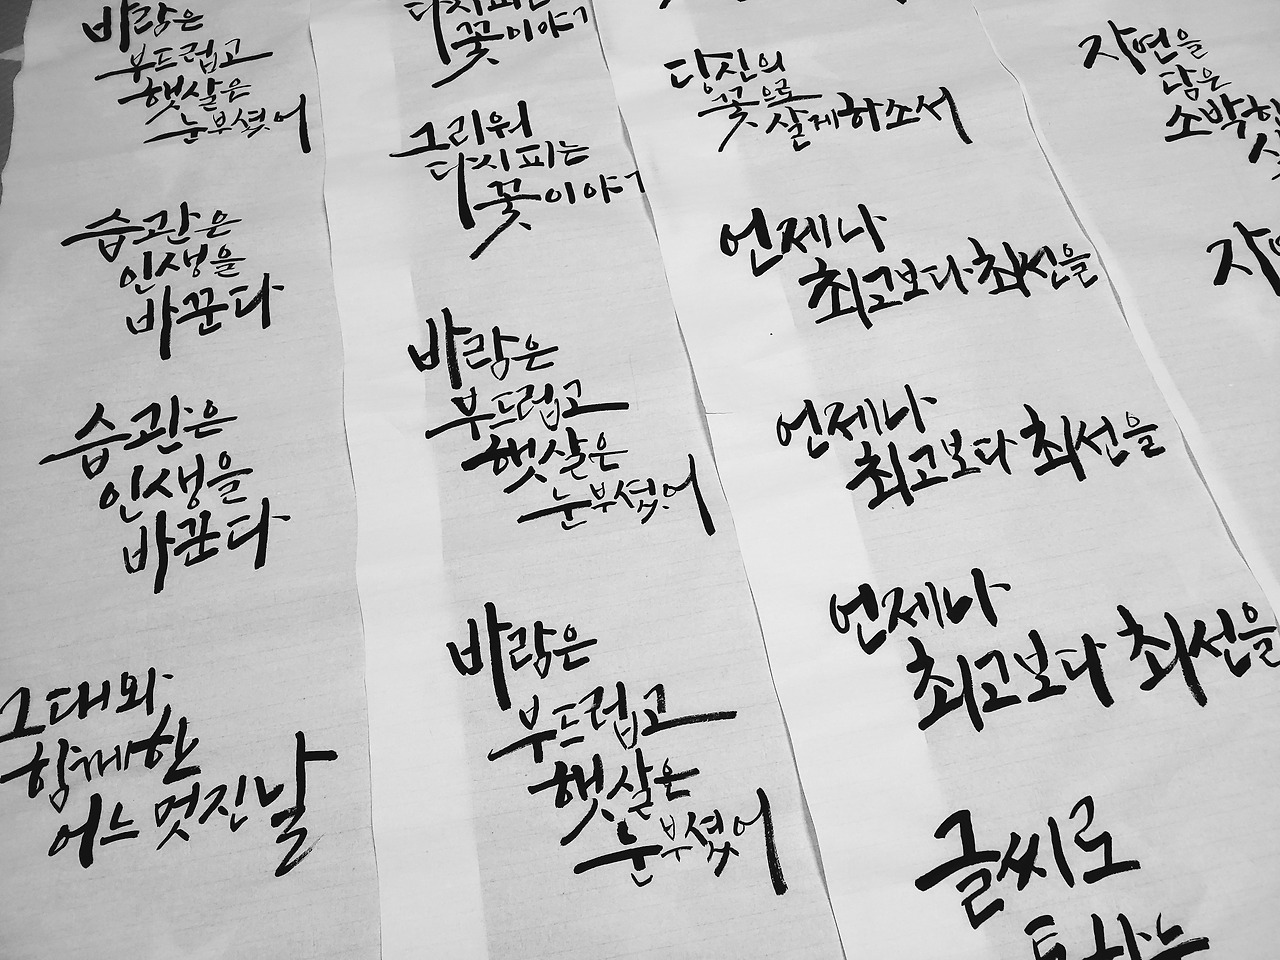 바람은
부드럽고
햇살은
눈부셨어
습관은
인생을
바꾼다
습관은
인생을
바꾼다
그대와
함께한
어느 멋진 날
다시 피는
꽃이야기
그리워
다시 피는
꽃이야기
바람은
부드럽고
햇살은
눈부셨어
바람은
부드럽고
햇살은
눈부셨어
당신의
꽃으로
살게 하소서
언제나
최고보다 최선을
언제나
최고보다 최선을
언제나
최고보다 최선을
글씨로
통하는
자연을
담은
소박한